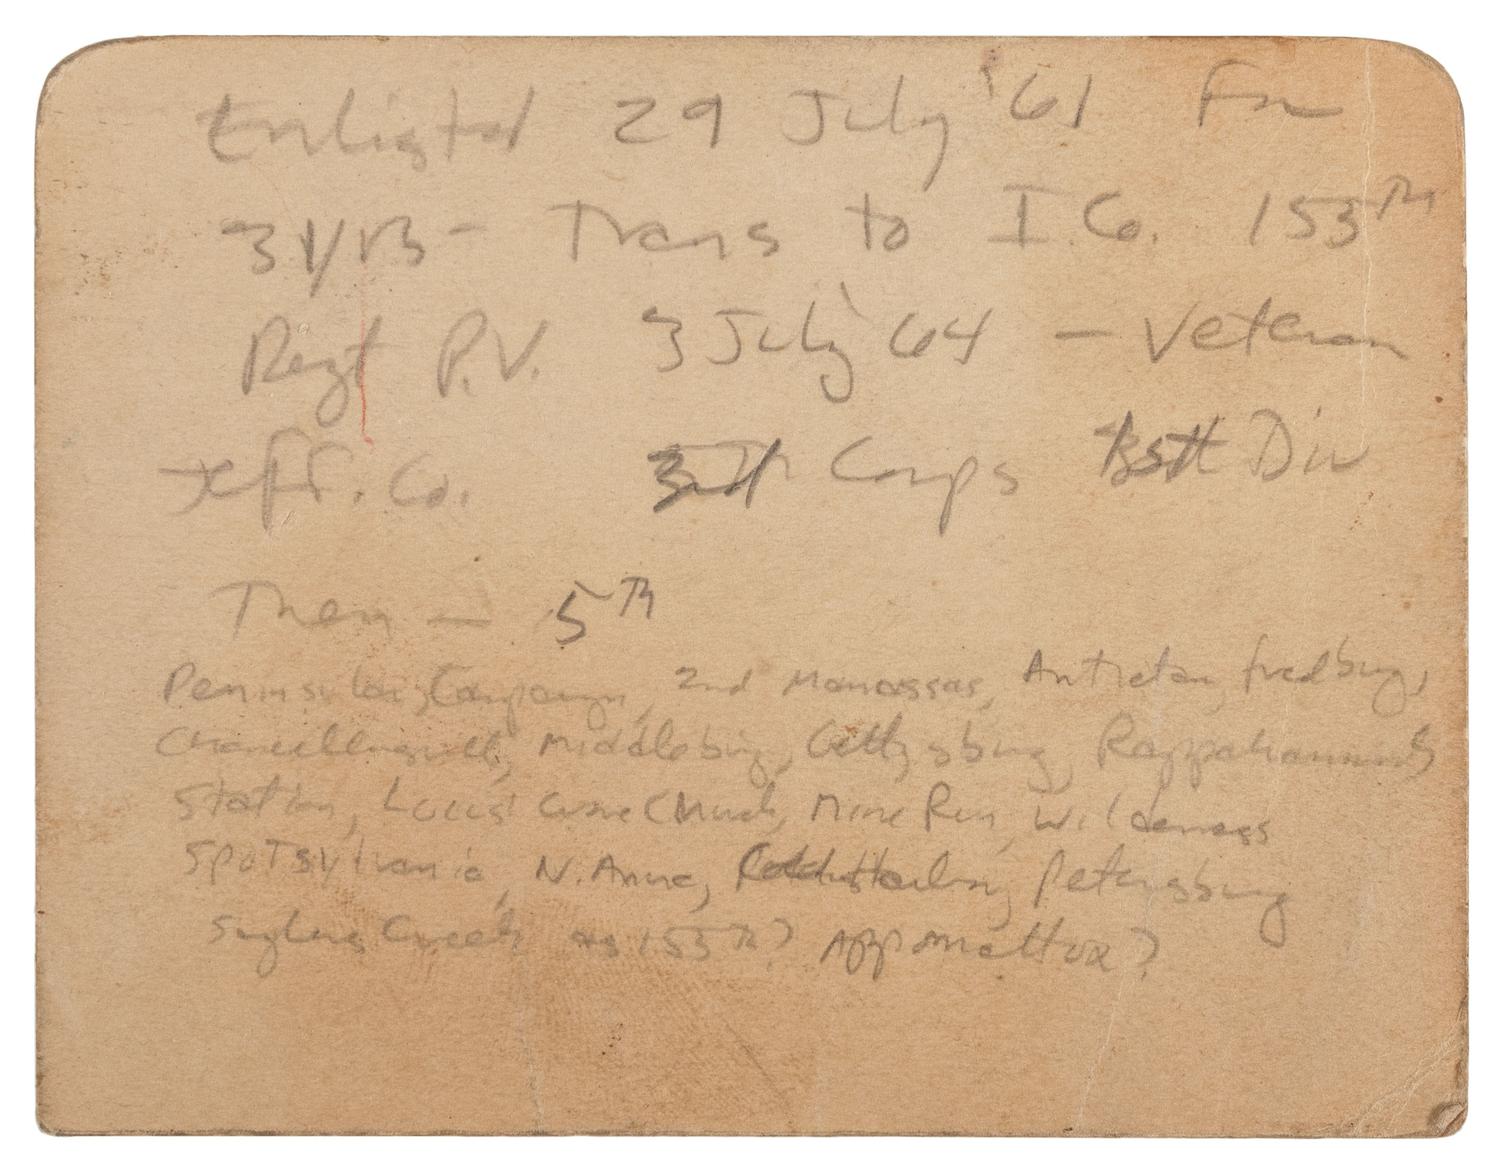 Enlisted 29 July '61 for
3 yrs - Trans to I. Co. 153th
Regt P.V. 3 July 64 - Veteran
Jeff. Co. Corps Div
Then — 5th
Peninsular Campaign, 2nd Manassas, Antietam, fredburg,
Chancellorsville, Middleburg, Gettysburg, Rappahannock
Station, Locust Grove Church, Mine Run, Wilderness
Spotsylvania, N. Anna, Petersburg
Saylers Creek as 153th? Appomattox?